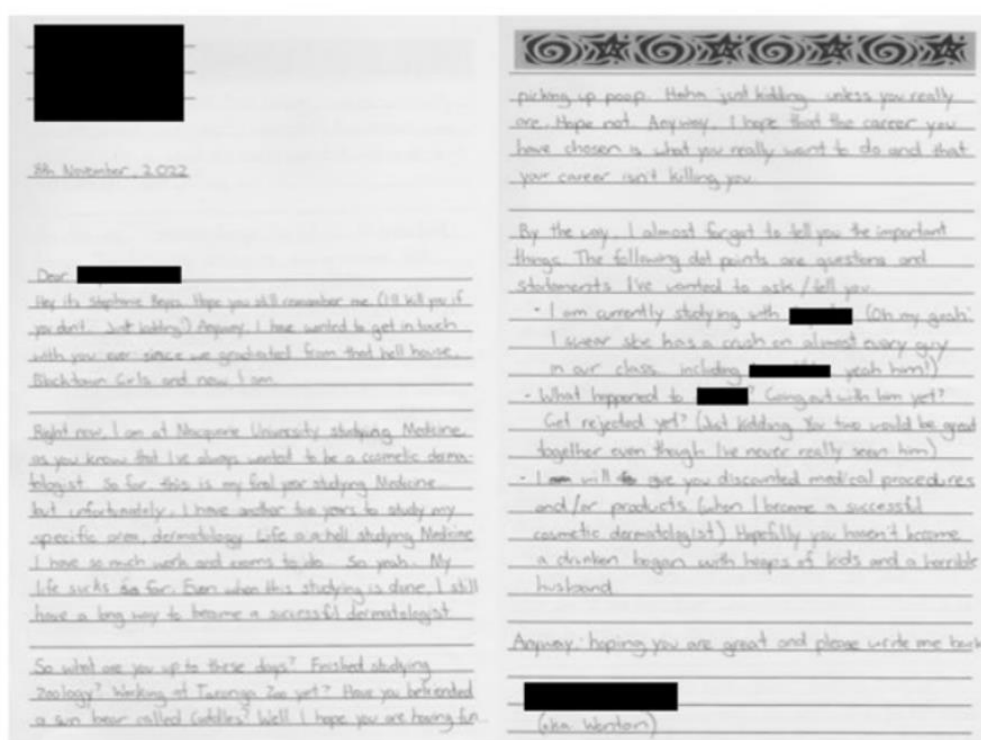 8th November, 2022
Dear
Hey its Stephanie Hope you still remember me. (I'll kill you if
you don't. Just kidding!) Anyway, I have wanted to get in touch
with you ever since we graduated from that hell house,
Blacktown Girls and now I am.
Right now, I am at Macquarie University studying Medicine,
as you know that I've always wanted to be a cosmetic derma-
tologist. So far, this is my final year studying Medicine
but unfortunately, I have another two years to study my
specific area, dermatology. Life is a hell studying Medicine
I have so much work and exams to do. So yeah. My
life sucks so far. Even when this studying is done, I still
have a long way to become a successful dermatologist
So what are you up to these days? Finished studying
Zoology? Working at Taronga Zoo yet? Have you befriended
a sun bear called Cuddles? Well I hope you are having fun
picking up poop. Haha just kidding unless you really
are. Hope not. Anyway, I hope that the career you
have chosen is what you really want to do and that
your career isn't killing you.
By the way, I almost forgot to tell you the important
things. The following dot points are questions and
statements I've wanted to ask / tell you.
- I am currently studying with (Oh my gosh!
I swear she has a crush on almost every guy
in our class, including yeah him!)
- What happened to ? Going out with him yet?
Get rejected yet? (Just kidding. You two would be great
together even though I've never really seen him)
- I will give you discounted medical procedures
and/or products (when I become a successful
cosmetic dermatologist) Hopefully you haven't become
a drunken with heaps of kids and a horrible
husband.
Anyway, hoping you are great and please write me back
(aka Wonton)